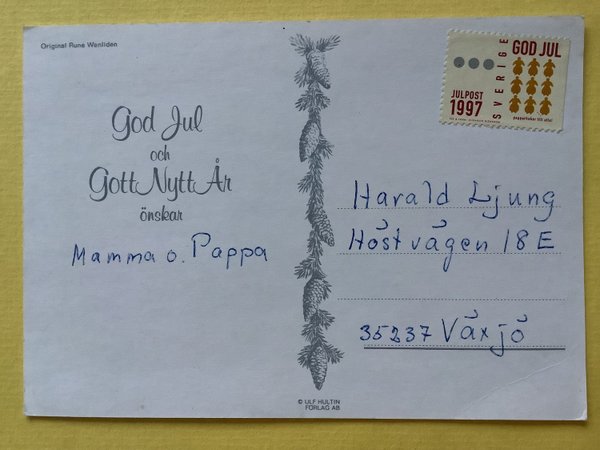 Original Rune Wenliden
God Jul
och
Gott Nytt År
önskar
Mamma o. Pappa
© ULF HULTIN
FÖRLAG AB
SVERIGE
GOD JUL
JULPOST
1997
pepparkakor till salu!
Harald Ljung
Höstvägen 18 E
35237 Växjö